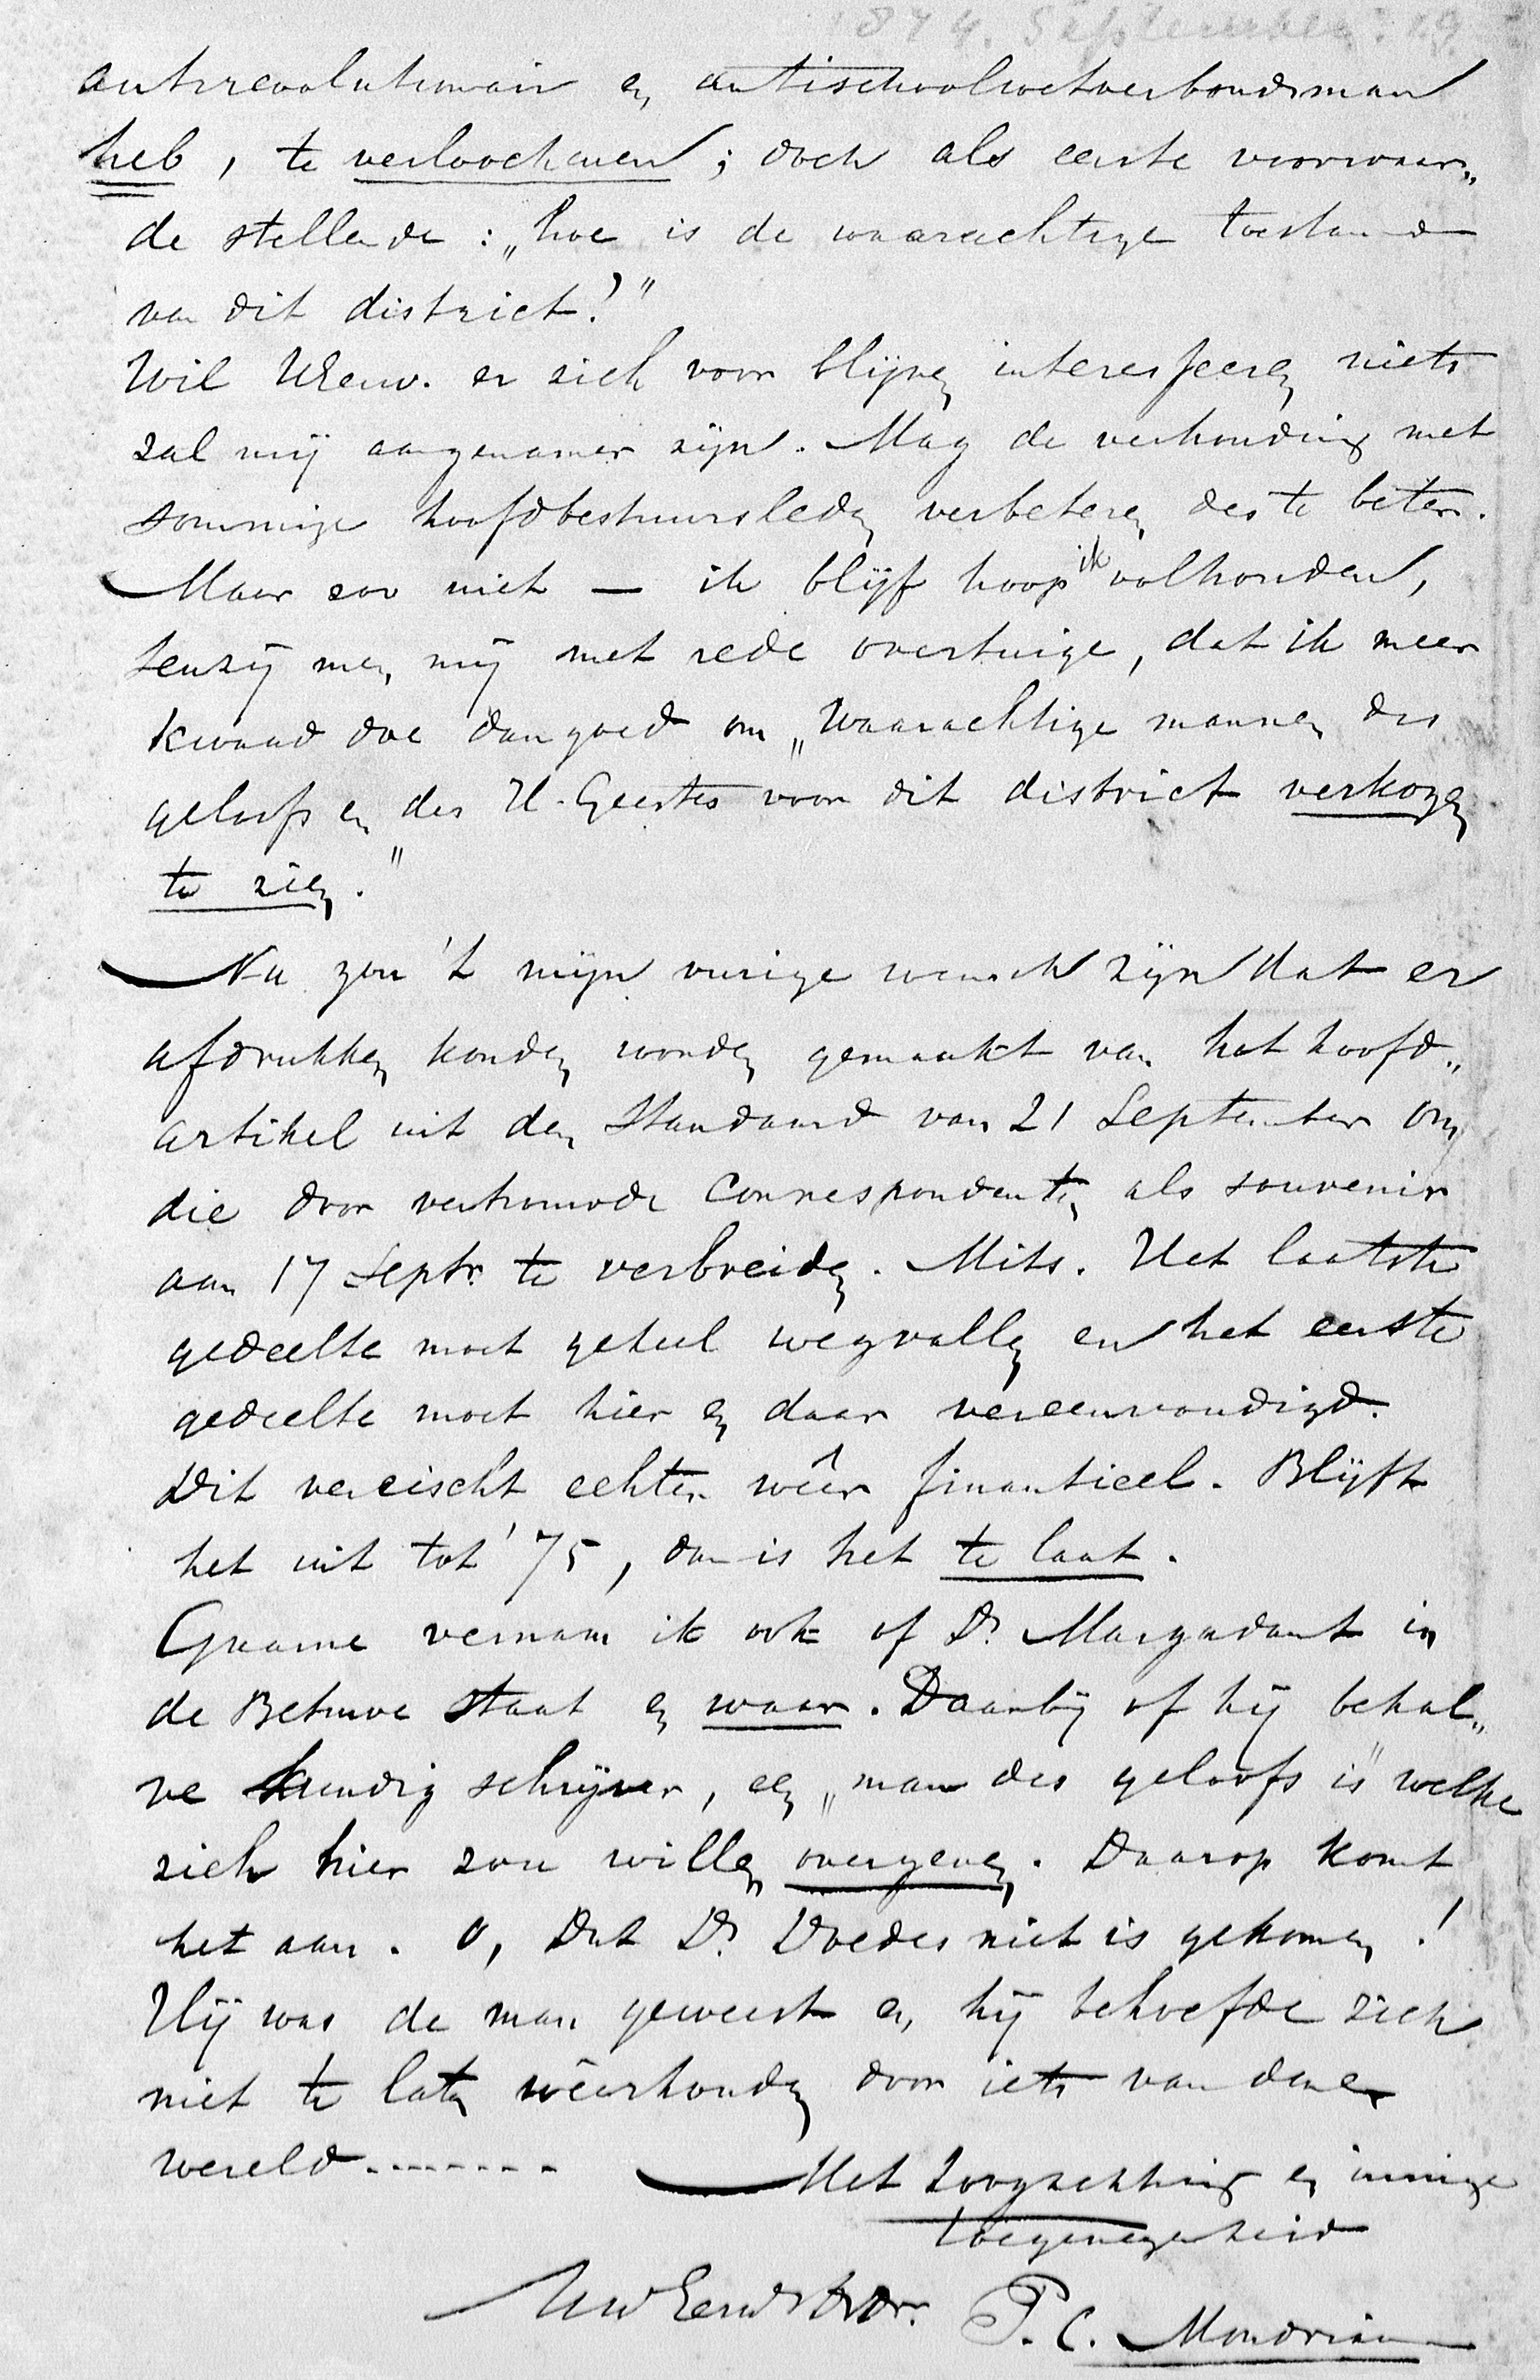 1874. September: 19
antirevolutionair en antischoolwetverbondsman
heb, te verloochenen; doch als eerste voorwaar„
de stellende: „hoe is de waarachtige toestand
van dit district?"
Wil UEerw. er zich voor blijven interesseeren niets
zal mij aangenamer zijn. Mag de verhouding met
sommige hoofdbestuursleden verbeteren des te beter.
Maar zoo niet — ik blijf hoop ik volhouden,
tenzij men mij met rede overtuige, dat ik meer
kwaad doe dan goed om „Waarachtige mannen des
geloofs en des H. Geestes voor dit district verkozen
te zien."
Nu zou 't mijn vurige wensch zijn dat er
afdrukken konden worden gemaakt van het hoofd„
artikel uit den Standaard van 21 September om
die door vertrouwde Correspondenten als souvenir
aan 17 Septr. te verbreiden. Mits. Het laatste
gedeelte moet geheel wegvallen en het eerste
gedeelte moet hier en daar vereenvoudigd.
Dit vereischt echter wêer finantieel. Blijft
het uit tot '75, dan is het te laat.
Gaarne vernam ik ook of Dr. Margadant in
de Betuwe staat en waar. Daarbij of hij behal„
ve kundig schrijver, een „man des geloofs is" welke
zich hier zou willen overgeven. Daarop komt
het aan. O, Dat Dr. Doedes niet is gekomen!
Hij was de man geweest en hij behoefde zich
niet te laten wêerhouden door iets van deze
wereld........
Met hoogachting en innige
toegenegenheid
UwEerw dv dr. P. C. Mondriaan